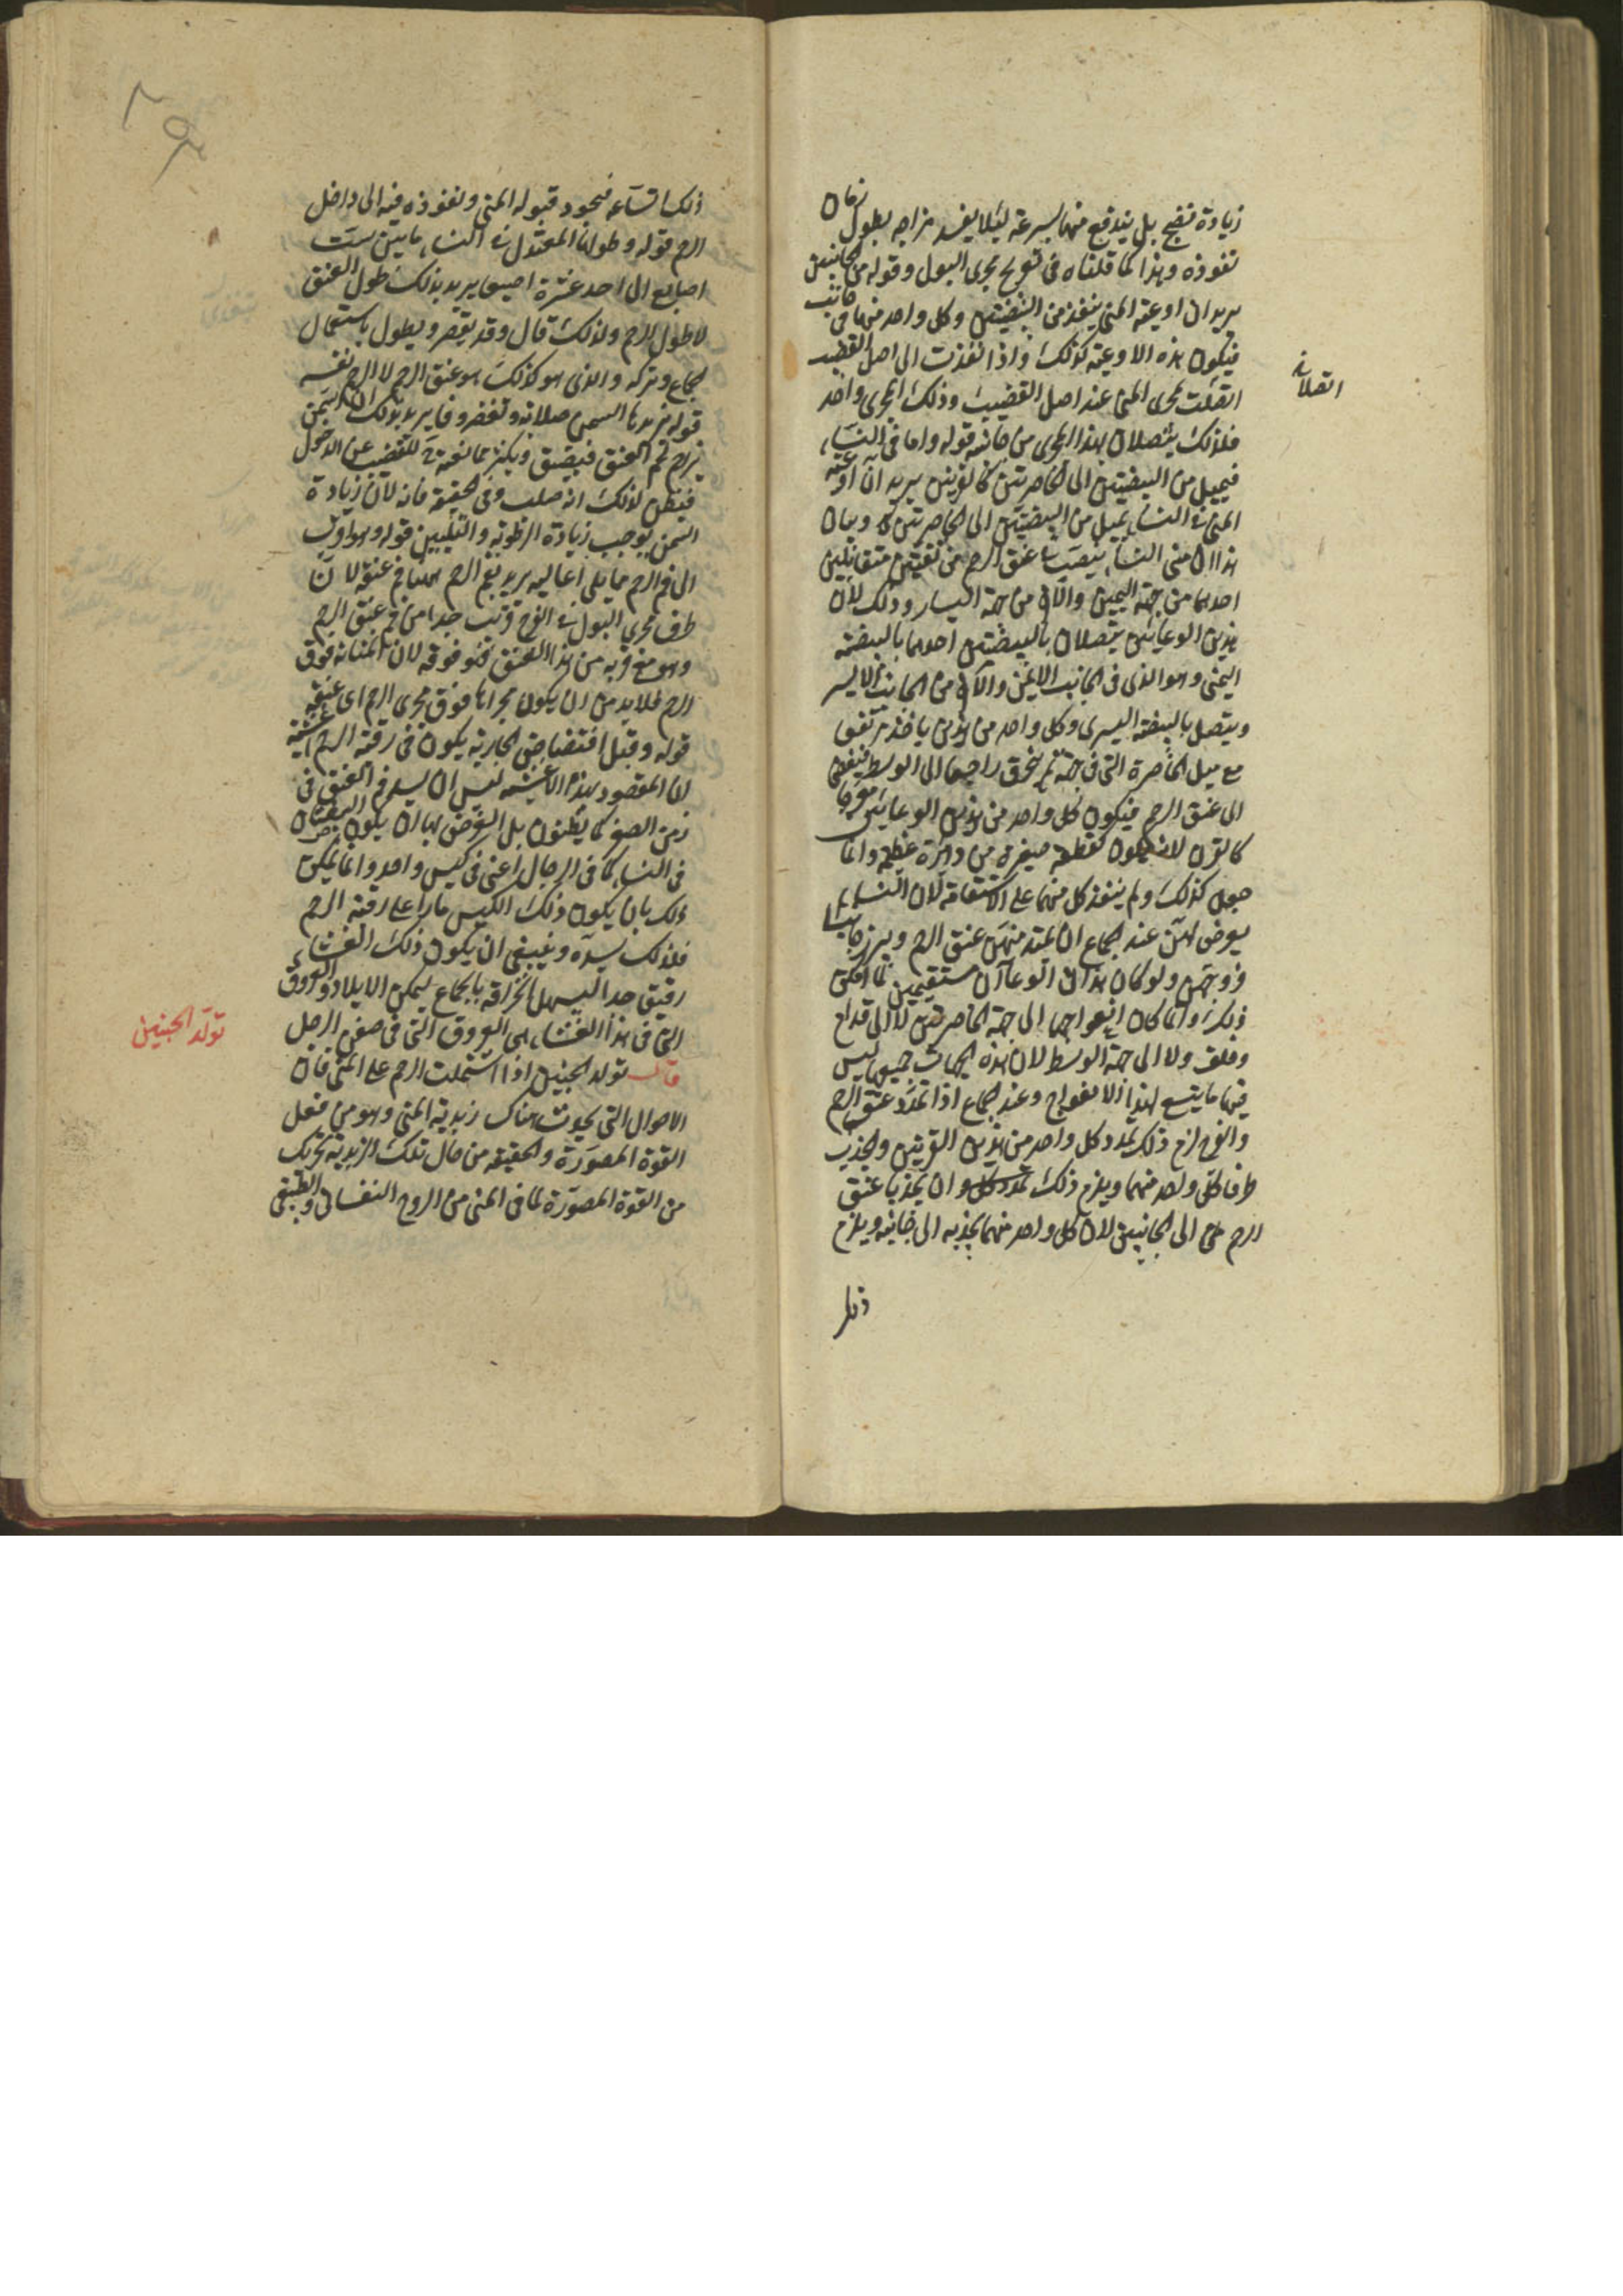 زيادة نضج بل يندفع منها بسرعة ليلا يفسد مزاجه بطول زمان
نفوذه وهذا كما قلناه فى تعويج مجرى البول وقوله من الجانبين
يريد ان اوعية المنى ينفذ من البيضتين وكل واحد منها فى جانب
فيكون هذه الاوعية كذلك واذا نفذت الى اصل القضيب
اتصلت بمجرى المنى عند اصل القضيب وذلك المجرى واحد
فلذلك يتصلان بهذا المجرى من جانبيه قوله واما فى النساء
فيميل من البيضتين الى الخاصرتين كالقرنين يريد ان اوعية
المنى فى النساء يميل من البيضتين الى الخاصرتين وبيان
هذا ان منى النساء ينصب الى عنق الرحم من ثقبتين متقابلتين
احدهما من جهة اليمين والآخر من جهة اليسار وذلك لان
هذين الوعائين يتصلان بالبيضتين احدهما بالبيضة
اليمنى وهو الذى فى الجانب الايمن والآخر من الجانب الايسر
ويتصل بالبيضة اليسرى وكل واحد من هذين ياخذ مرتفعا
مع ميل الى الخاصرة التى فى جهته ثم ينحرف راجعا الى الوسط فيفضى
الى عنق الرحم فيكون كل واحد من هذين الوعائين معوجا
كالقرن لانه يكون كقطعة صغيرة من دائرة عظيمة وانما
جعل كذلك ولم ينفذ كل منهما على الاستقامة لان النساء
يعرض لهن عند الجماع ان يمتد منهن عنق الرحم ويبرز جانبا
فروجهن ولو كان هذان الوعاآن مستقيمين لما امكن
ذلك وانما كان انعواجهما الى جهة الخاصرتين لا الى قدام
وخلف ولا الى جهة الوسط لان هذه الجهات جميعها ليس
فيها ما يتسع لهذا الانعواج وعند الجماع اذا تمدد عنق الرحم
والفرج لزم ذلك تمدد كل واحد من هذين القرنين وانجذب
طرفا كل واحد منهما ويلزم ذلك تمدد كل وان يجذبا عنق
الرحم الى الجانبين لان كل واحد منهما يجذبه الى جانبه ويلزم
ذلك
اتصلا به
ذلك اتساعه فيجود قبوله المنى ونفوذه فيه الى داخل
الرحم قوله وطولها المعتدل فى النساء ما بين ست
اصابع الى احد عشرة اصبعا يريد بذلك طول العنق
لا طول الرحم ولذلك قال وقد يقصر ويطول باستعمال
الجماع وتركه والذى هو كذلك هو عنق الرحم لا الرحم نفسه
قوله يزيدها السمن صلابة وتغضرفا يريد بذلك ان السمن
يزاحم فم العنق فيضيق ويكثر ممانعته للقضيب عن الدخول
فيظن لذلك انه صلب وفى الحقيقة فانه لان زيادة
السمن يوجب زيادة الرطوبة والتليين قوله وهو اقرب
الى فم الرحم مما يلى اعاليه يريد بفم الرحم ههنا فم عنقه لان
طرف مجرى البول فى الفرج قريب جدا من فم عنق الرحم
وهو مع قربه من هذا العنق فهو فوقه لان المثانة فوق
الرحم فلا بد من ان يكون مجراها فوق مجرى الرحم اى عنقه
قوله وقبل افتضاض الجارية يكون فى رقبة الرحم اغشية
لان المقصود بهذه الاغشية ليس ان يسد فم العنق فى
زمن الصغر كما يظنون بل الغرض بها ان يكون البيضتان
فى النساء كما فى الرجال اعنى فى كيس واحد وانما يمكن
ذلك بان يكون ذلك الكيس مارا على رقبة الرحم
فلذلك يسده وينبغى ان يكون ذلك الغشاء
رقيق جدا ليسهل انخراقه بالجماع ليمكن الايلاد والعروق
التى فى هذا الغشاء هى العروق التى فى صفن الرجل
قال تولد الجنين اذا اشتملت الرحم على المنى فان
الاحوال التى يحدث هناك زبدية المنى وهو من فعل
القوة المصورة والحقيقة من حال تلك الزبدية تحريك
من القوة المصورة لما فى المنى من الروح النفسانى والطبيعى
تولد الجنين